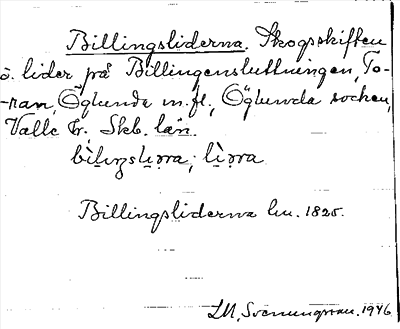 Billingsliderna. Skogsskiften
ö. lider på Billingensluttningen, To-
-ran, Öglunda m. fl., Öglunda socken,
Valle hr, Skb. län.
Billingsliderna lm. 1825.
LM. Svenungsson. 1946